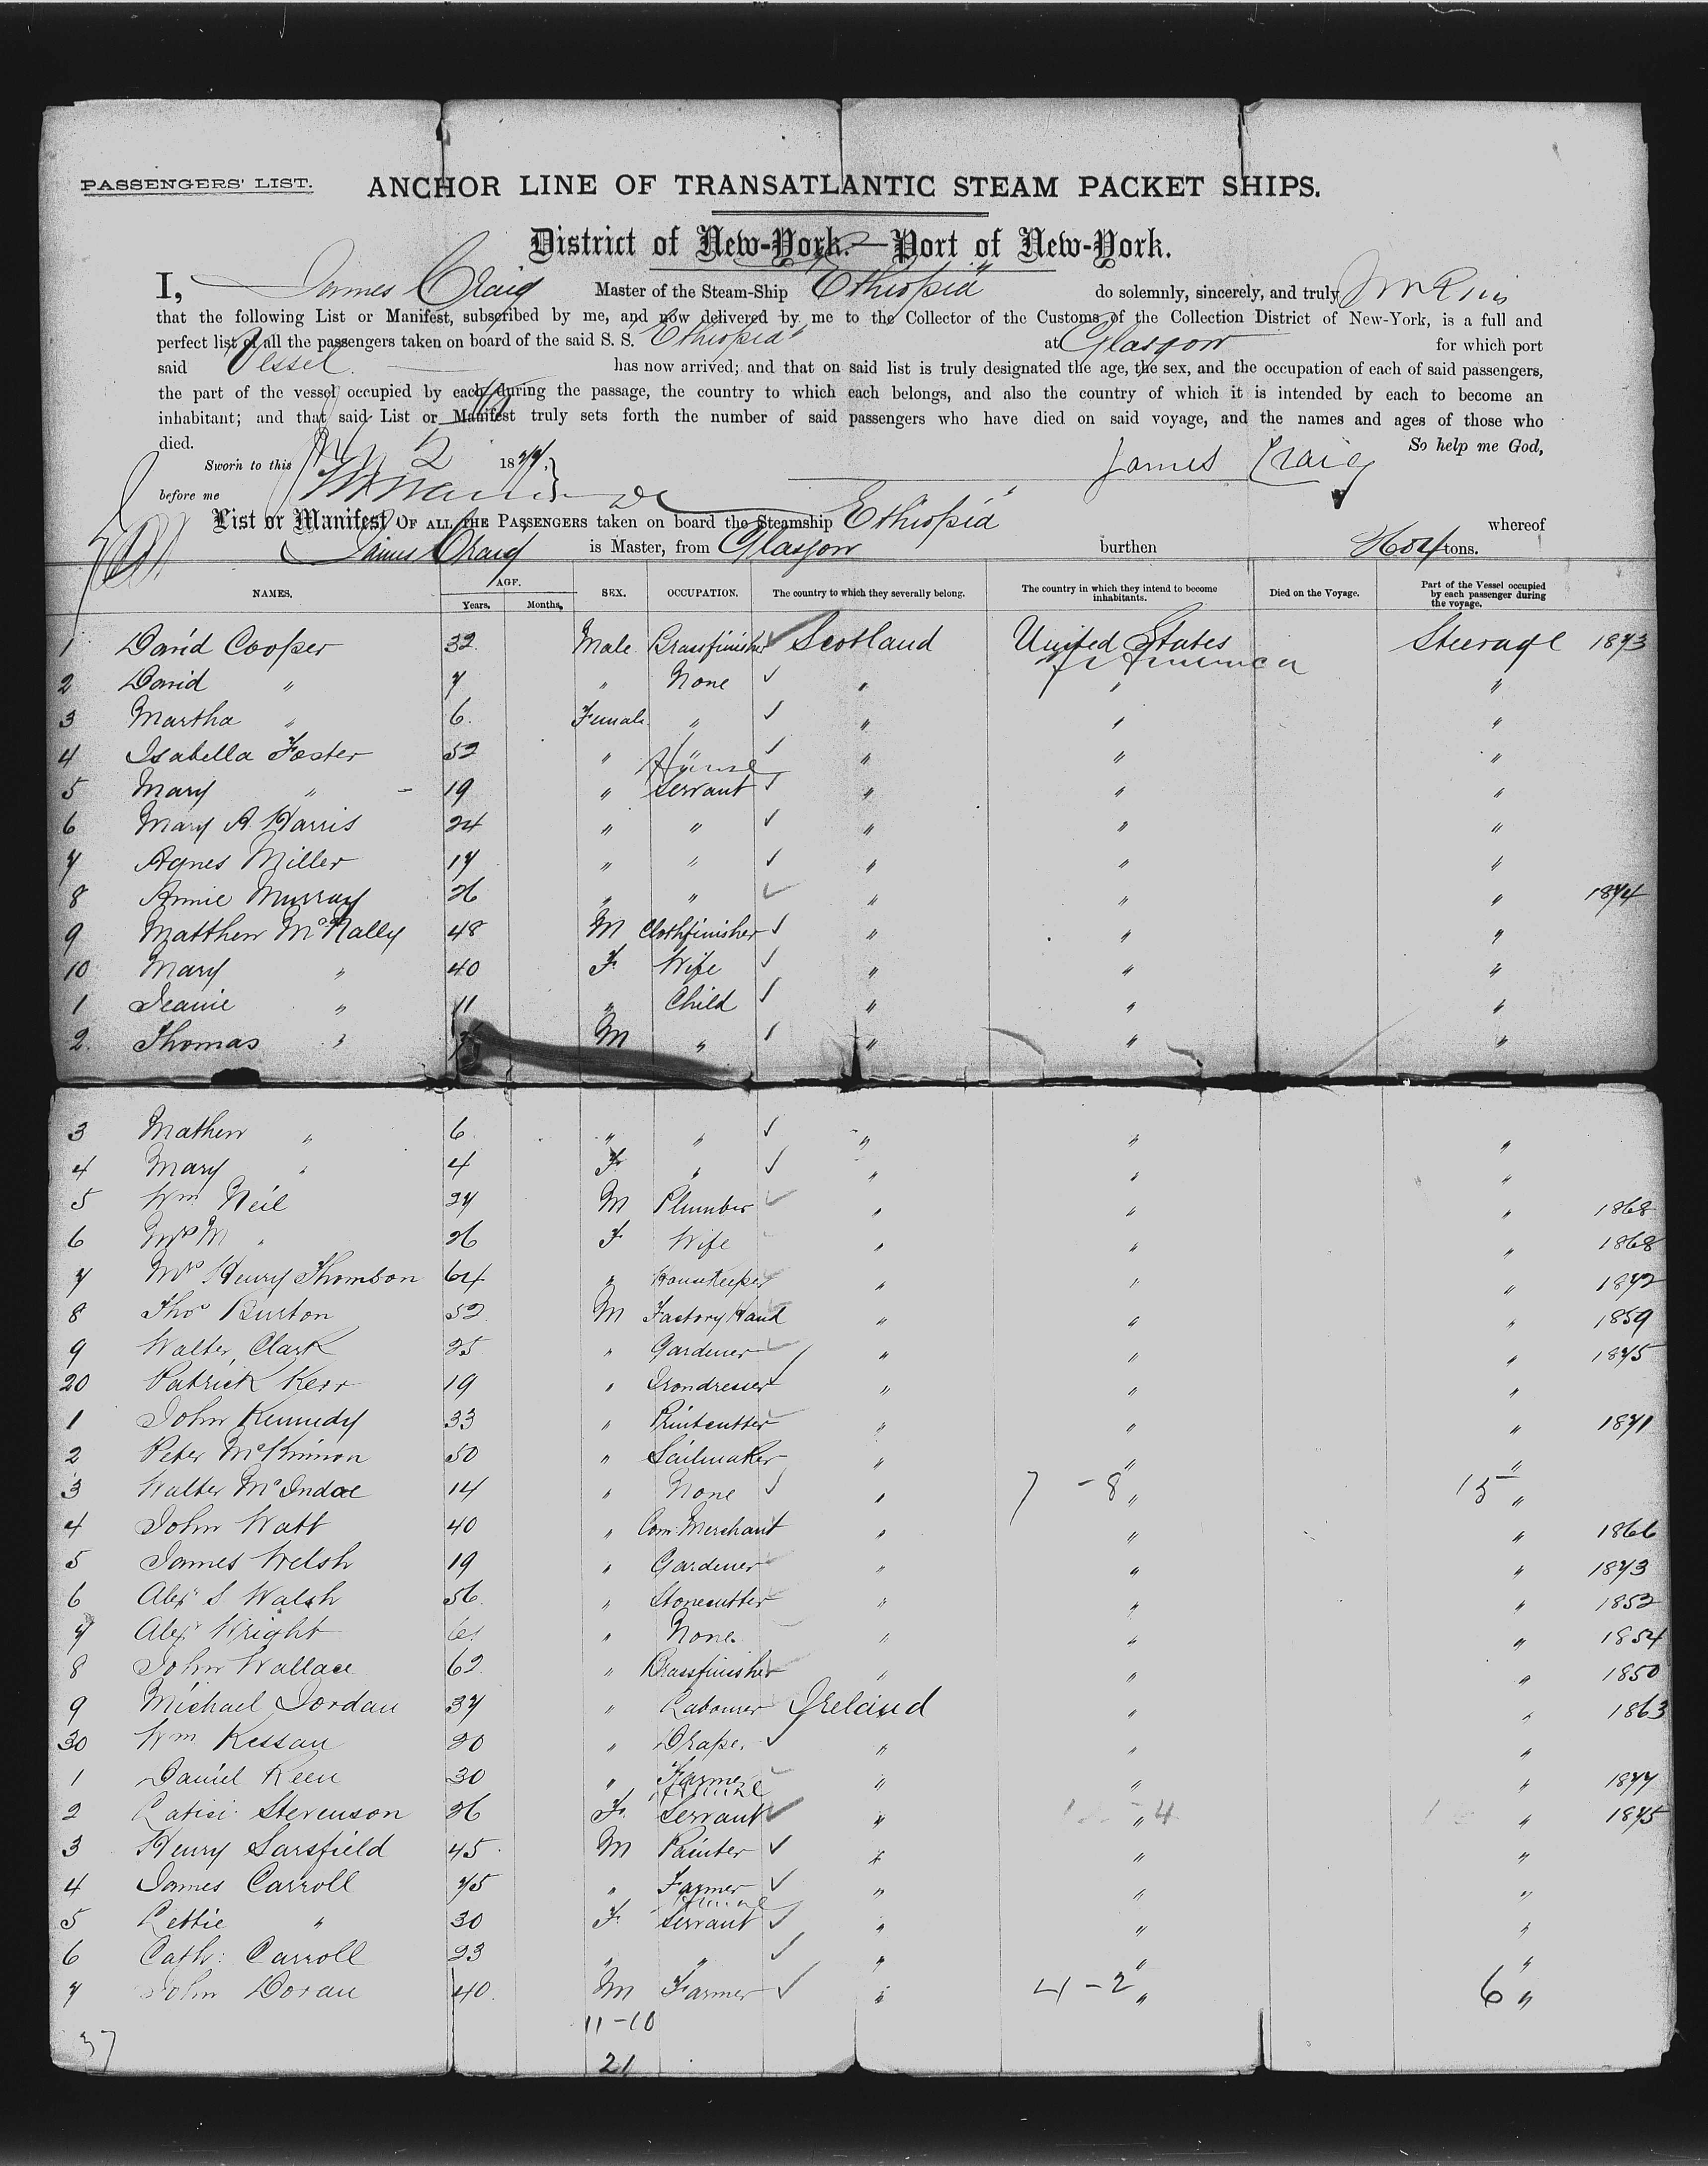 PASSENGERS' LIST. ANCHOR LINE OF TRANSATLANTIC STEAM PACKET SHIPS.
District of New-York.—Port of New-York.
I, James Craig Master of the Steam-Ship "Ethiopia" do solemnly, sincerely, and truly
that the following List or Manifest, subscribed by me, and now delivered by me to the Collector of the Customs of the Collection District of New-York, is a full and
perfect list of all the passengers taken on board of the said S. S. "Ethiopia" at Glasgow for which port
said Vessel. has now arrived; and that on said list is truly designated the age, the sex, and the occupation of each of said passengers,
the part of the vessel occupied by each during the passage, the country to which each belongs, and also the country of which it is intended by each to become an
inhabitant; and that said List or Manifest truly sets forth the number of said passengers who have died on said voyage, and the names and ages of those who
died. So help me God,
Sworn to this 2 1877, James Craig
before me
List or Manifest OF ALL THE PASSENGERS taken on board the Steamship Ethiopia" whereof
James Craig is Master, from Glasgow burthen tons.
NAMES. AGE. Years. Months. SEX. OCCUPATION. The country to which they severally belong. The country in which they intend to become inhabitants. Died on the Voyage. Part of the Vessel occupied by each passenger during the voyage.
1 David Cooper 32 Male Brassfinisher ✓ Scotland United States of America Steerage 1873
2 David " 7 " None ✓ " " "
3 Martha " 6 Female " ✓ " " "
4 Isabella Foster 52 " " ✓ " " "
5 Mary " 19 " Servant ✓ " " "
6 Mary A. Harris 24 " " ✓ " " "
7 Agnes Miller 17 " " ✓ " " "
8 Annie Murray 26 " " ✓ " " " 1874
9 Matthew McNally 48 M Clothfinisher ✓ " " "
10 Mary " 40 F Wife ✓ " " "
1 Jeanie " 11 " Child ✓ " " "
2 Thomas " M " ✓ " " "
3 Mathew " 6 " " ✓ " " "
4 Mary " 4 F " ✓ " " "
5 Wm Neil 27 M Plumber ✓ " " " 1868
6 Mrs M " 26 F Wife " " " 1868
7 Mrs Henry Thomson 64 " Housekeeper " " " 1872
8 Thos Burton 52 M Factory Hand " " " 1859
9 Walter Clark 25 " Gardener ✓ " " " 1875
20 Patrick Kerr 19 " Irondresser ✓ " " "
1 John Kennedy 33 " Printcutter " " " 1871
2 Peter McKinnon 50 " Sailmaker " " "
3 Walter McIndoe 14 " None ✓ " 7 - 8 " 15 "
4 John Watt 40 " Com: Merchant " " " 1866
5 James Welsh 19 " Gardener " " " 1873
6 Alexr S. Walsh 56 " Stonecutter " " " 1852
7 Alexr Wright 61 " None " " " 1854
8 John Wallace 62 " Brassfinisher " " " 1850
9 Michael Jordan 37 " Labourer Ireland " " 1863
30 Wm Kessan 20 " Draper ✓ " " "
1 Daniel Keen 30 " Farmer ✓ " " " 1877
2 Stevenson 26 F Servant ✓ " " 4 " 1875
3 Henry Sarsfield 45 M Painter ✓ " " "
4 James Carroll 75 " Farmer ✓ " " "
5 Lettie " 30 F Servant ✓ " " "
6 Cath: Carroll 23 " " ✓ " " "
7 John Doran 40 M Farmer ✓ " 4 - 2 " 6 "
11-10
37 21